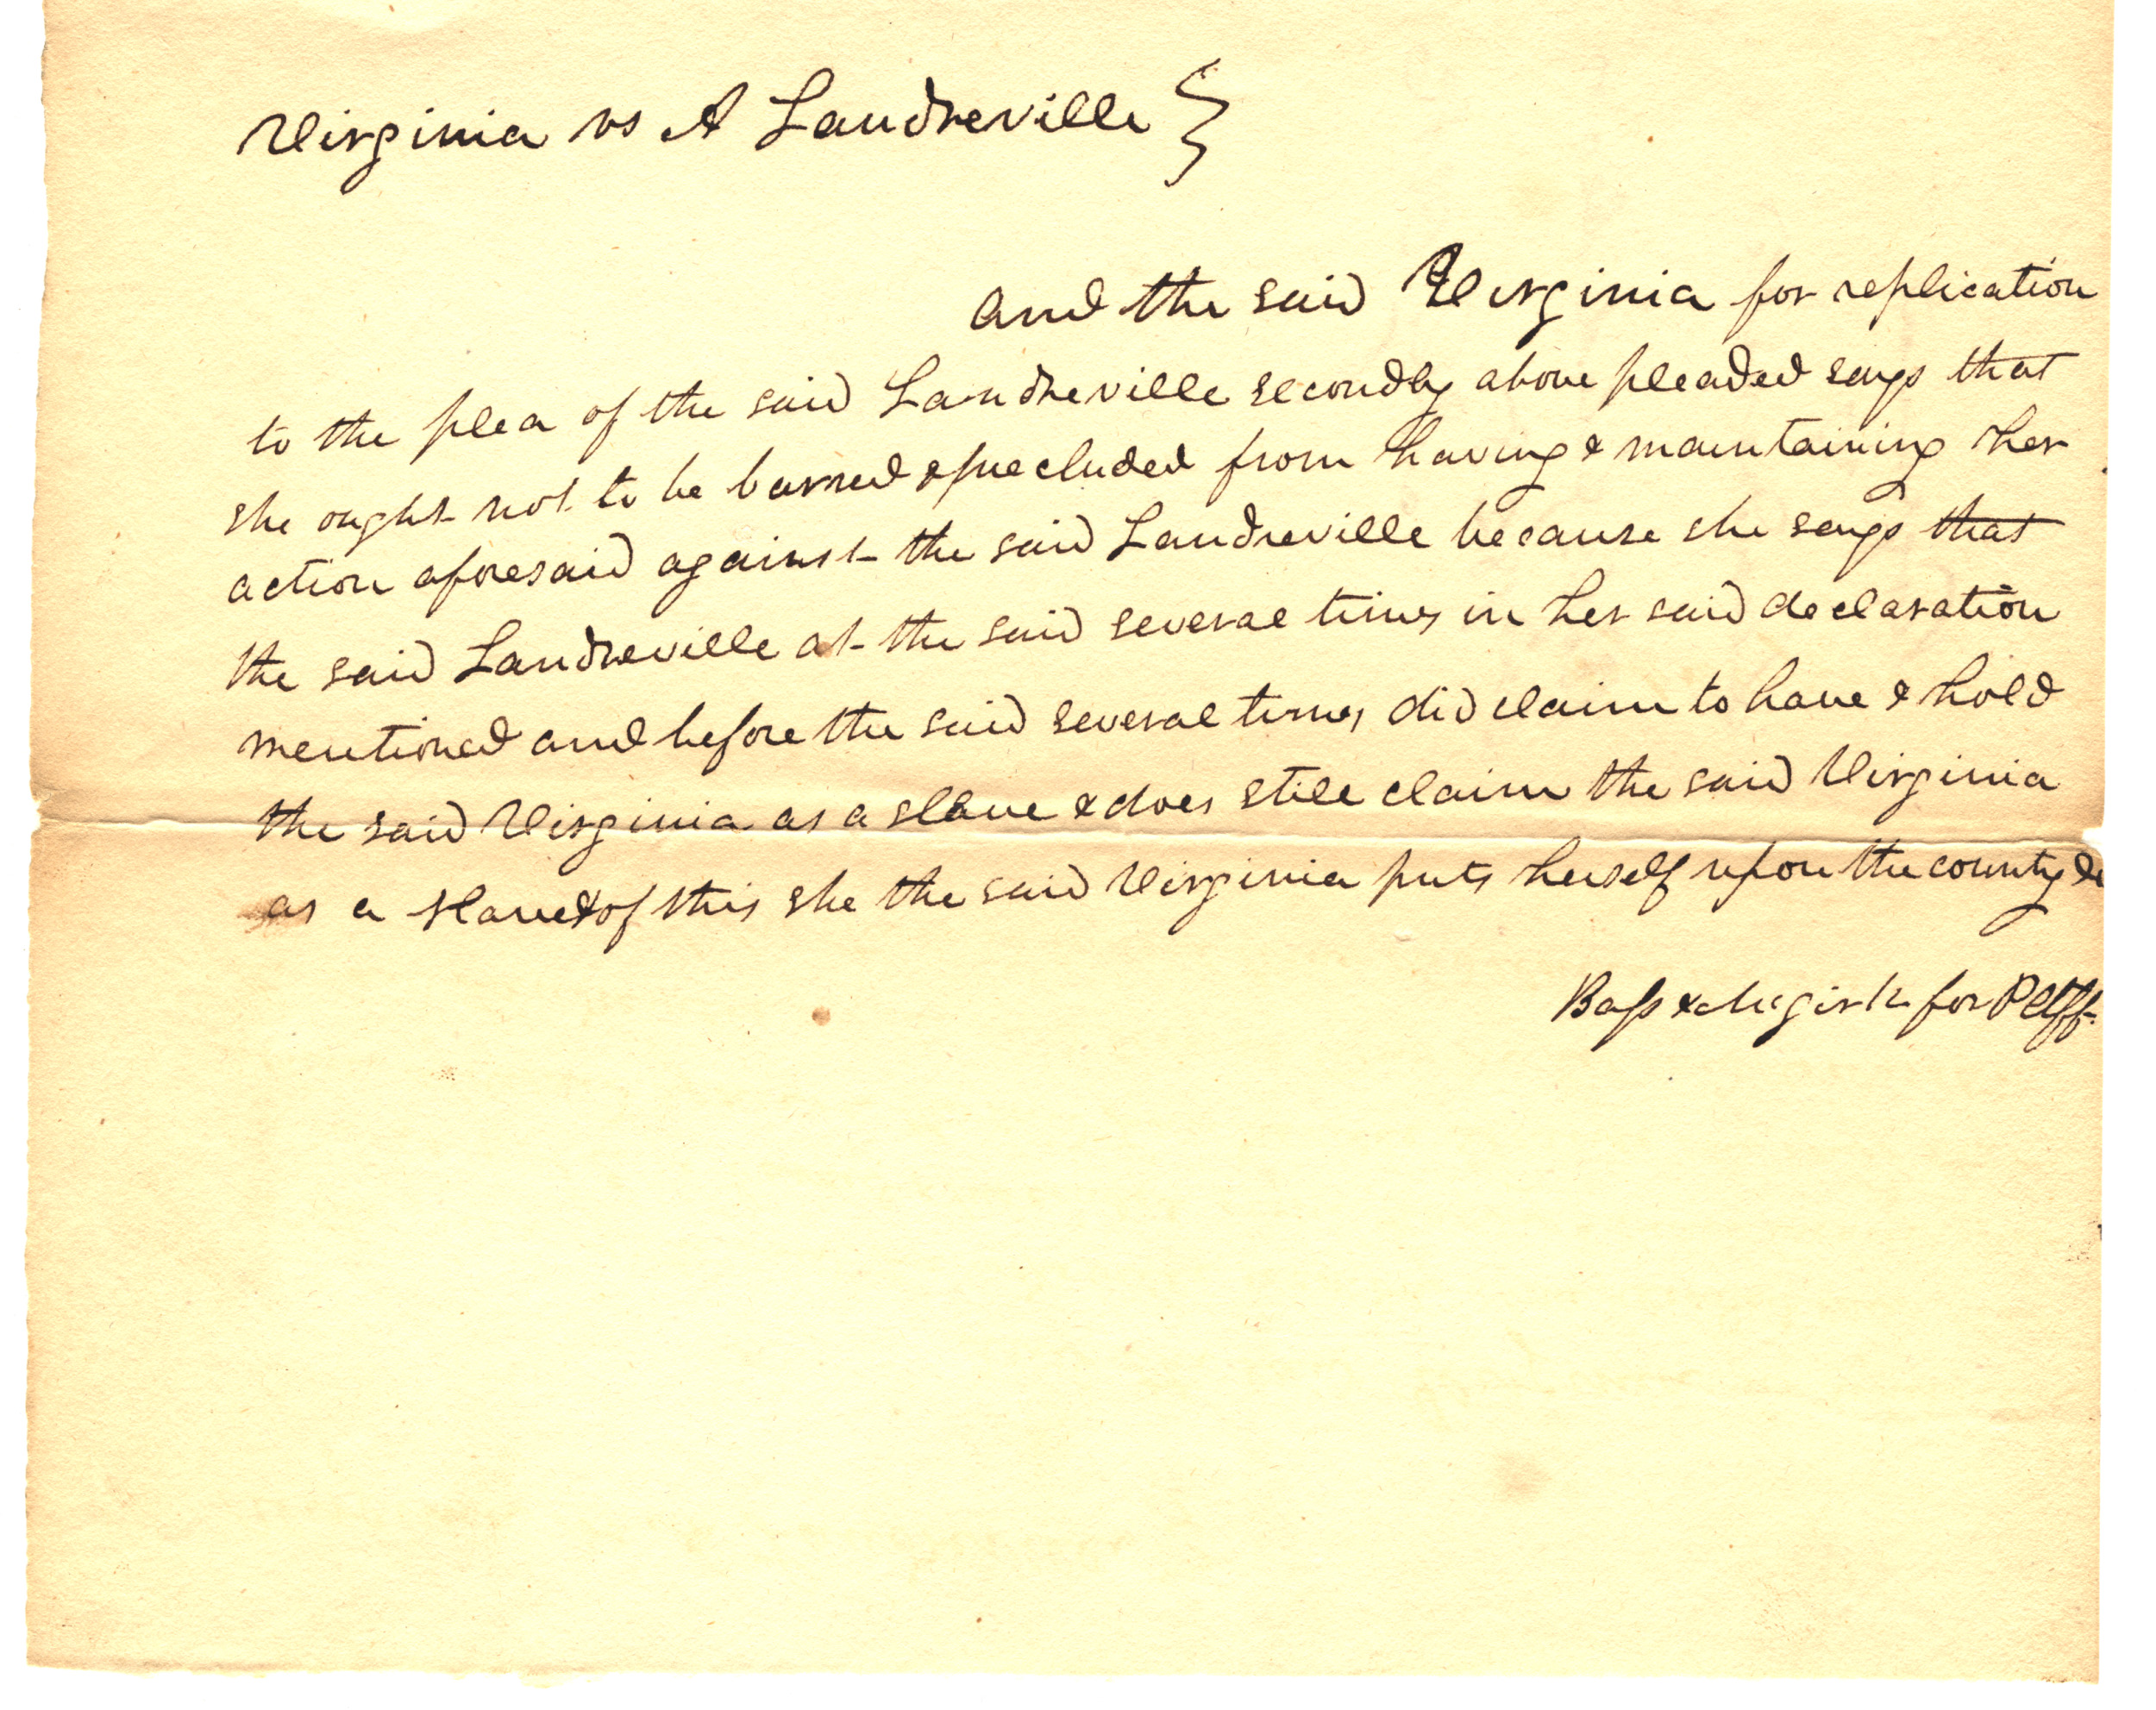 Virginia vs A Landreville }
And the said Virginia for replication
to the plea of the said Landreville secondly above pleaded says that
she ought not to be barred & precluded from having & maintaining her
action aforesaid against the said Landreville because she says that
the said Landreville at the said several times in her said declaration
mentioned and before the said several times did claim to have & hold
the said Virginia as a slave & does still claim the said Virginia
as a slave & of this she the said Virginia puts herself upon the county &c
Bass & Megirk for Pltff.